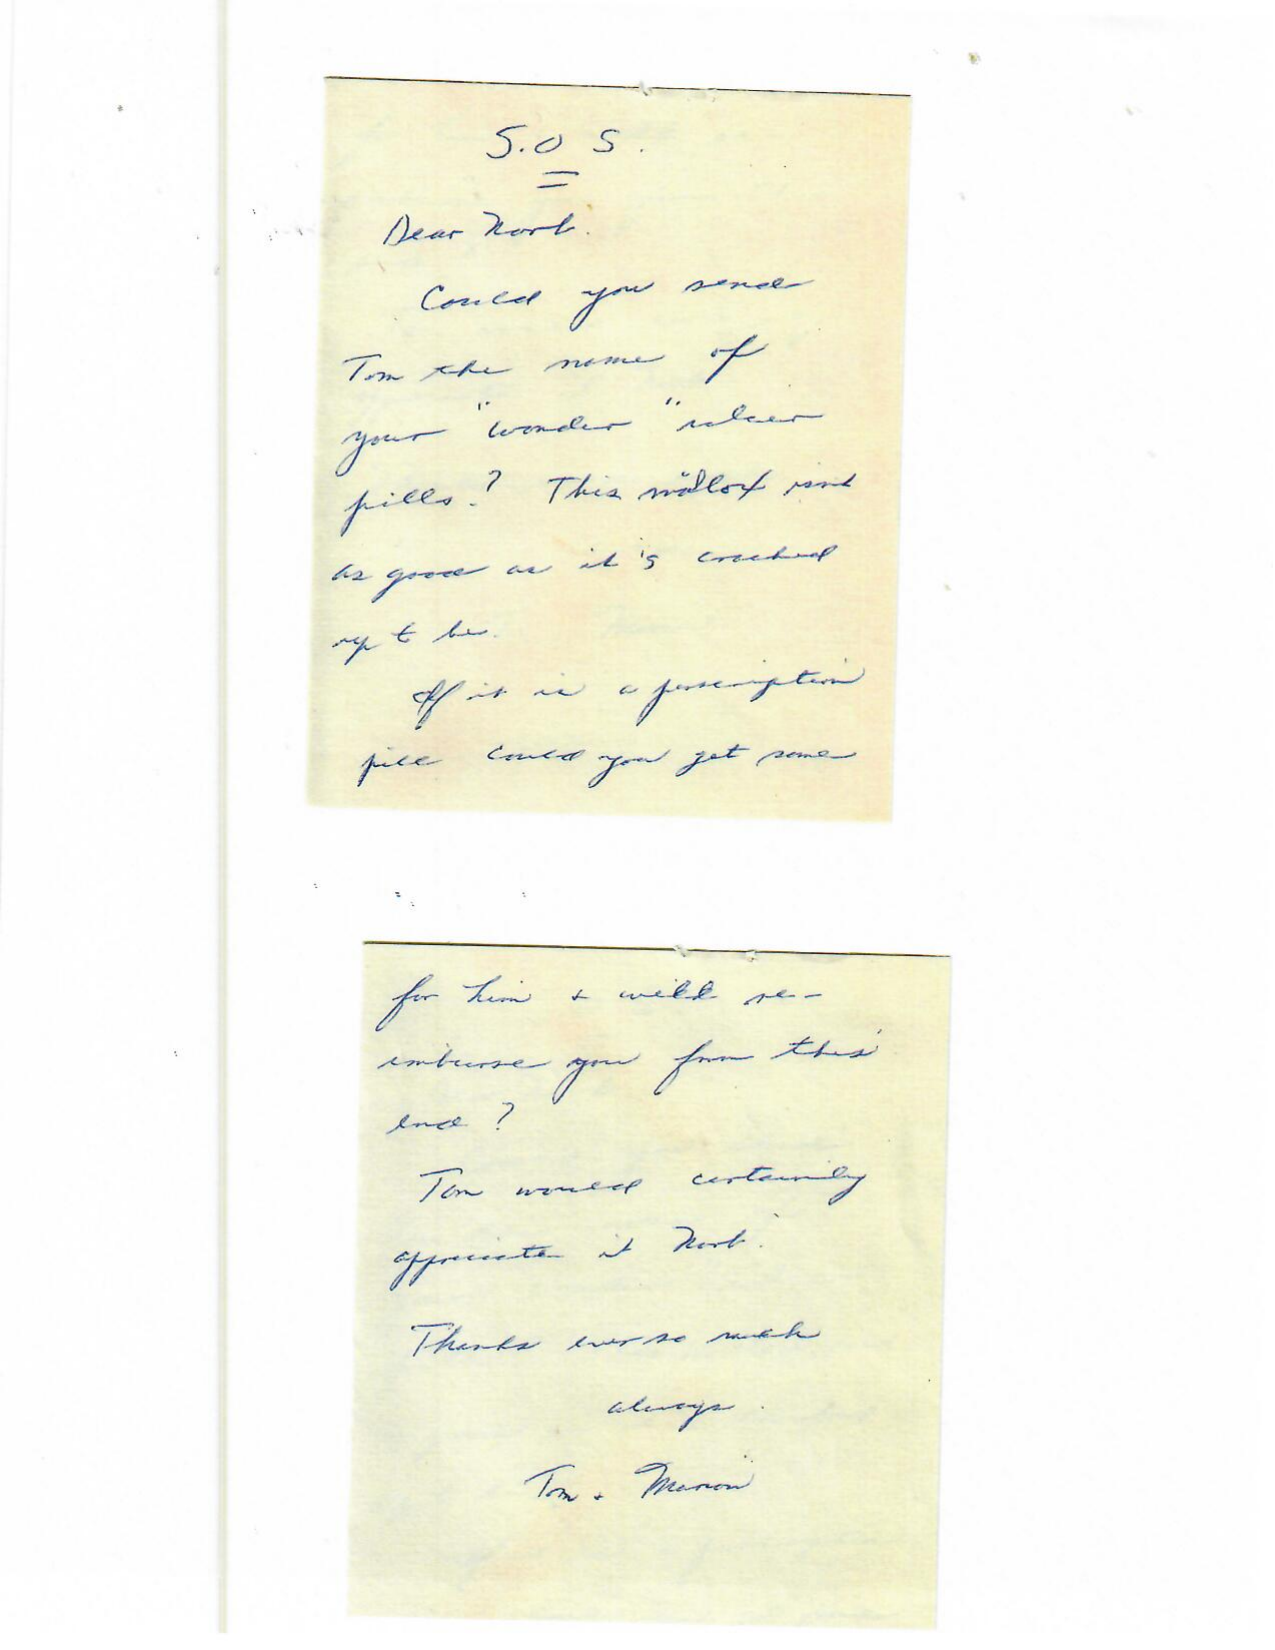 S.O S.
Dear Norb.
Could you send
Tom the name of
your "wonder" ulcer
pills? This malox isnt
as good as it's cracked
up to be.
If it is a perscription
pill could you get some
for him + will re-
imburse you from this
end?
Tom would certainly
appreciate it Norb.
Thanks ever so much
always.
Tom + Marion